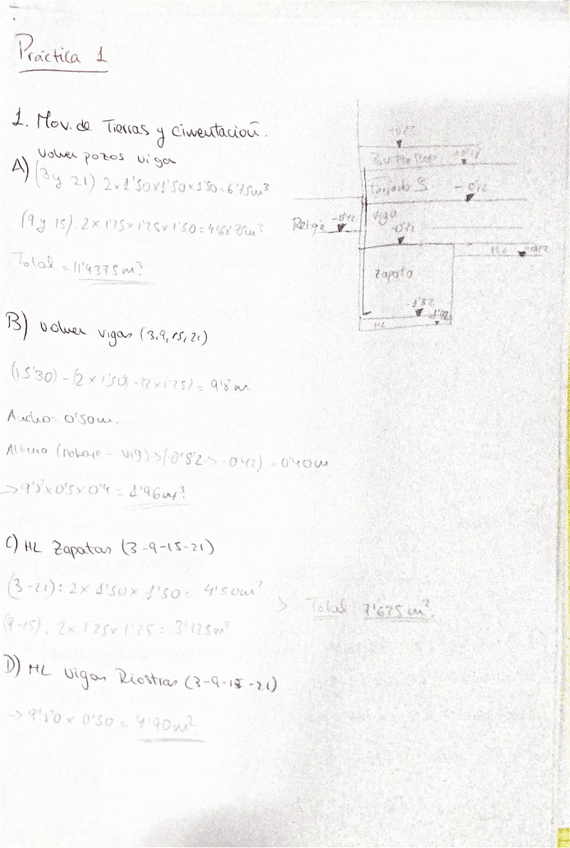 Práctica 1
1. Mov. de Tierras y cimentación.
A) Volver pozos viga
(3 y 21) 2x1'50x1'50x1'50=6'75m³
(9 y 15). 2x1'25x1'25x1'50=4'6875m³
Total = 11'4375m³
B) Volver vigas (3,9,15,21)
(15'30)-(2x1'50)-(2x1'25)= 9'8m
Ancho= 0'50m.
Altura
= 0'40m
→ 9'8x0'5x0'4= 1'96m³
C) HL Zapatas (3-9-15-21)
(3-21): 2x 1'50x 1'50= 4'50m²
(9-15). 2x1'25x1'25= 3'125m²
> Total 7'625m².
D) HL Vigas Riostras (3-9-15-21)
→ 9'80 x 0'50= 4'90m²
Forjado S
viga
Zapata
HL